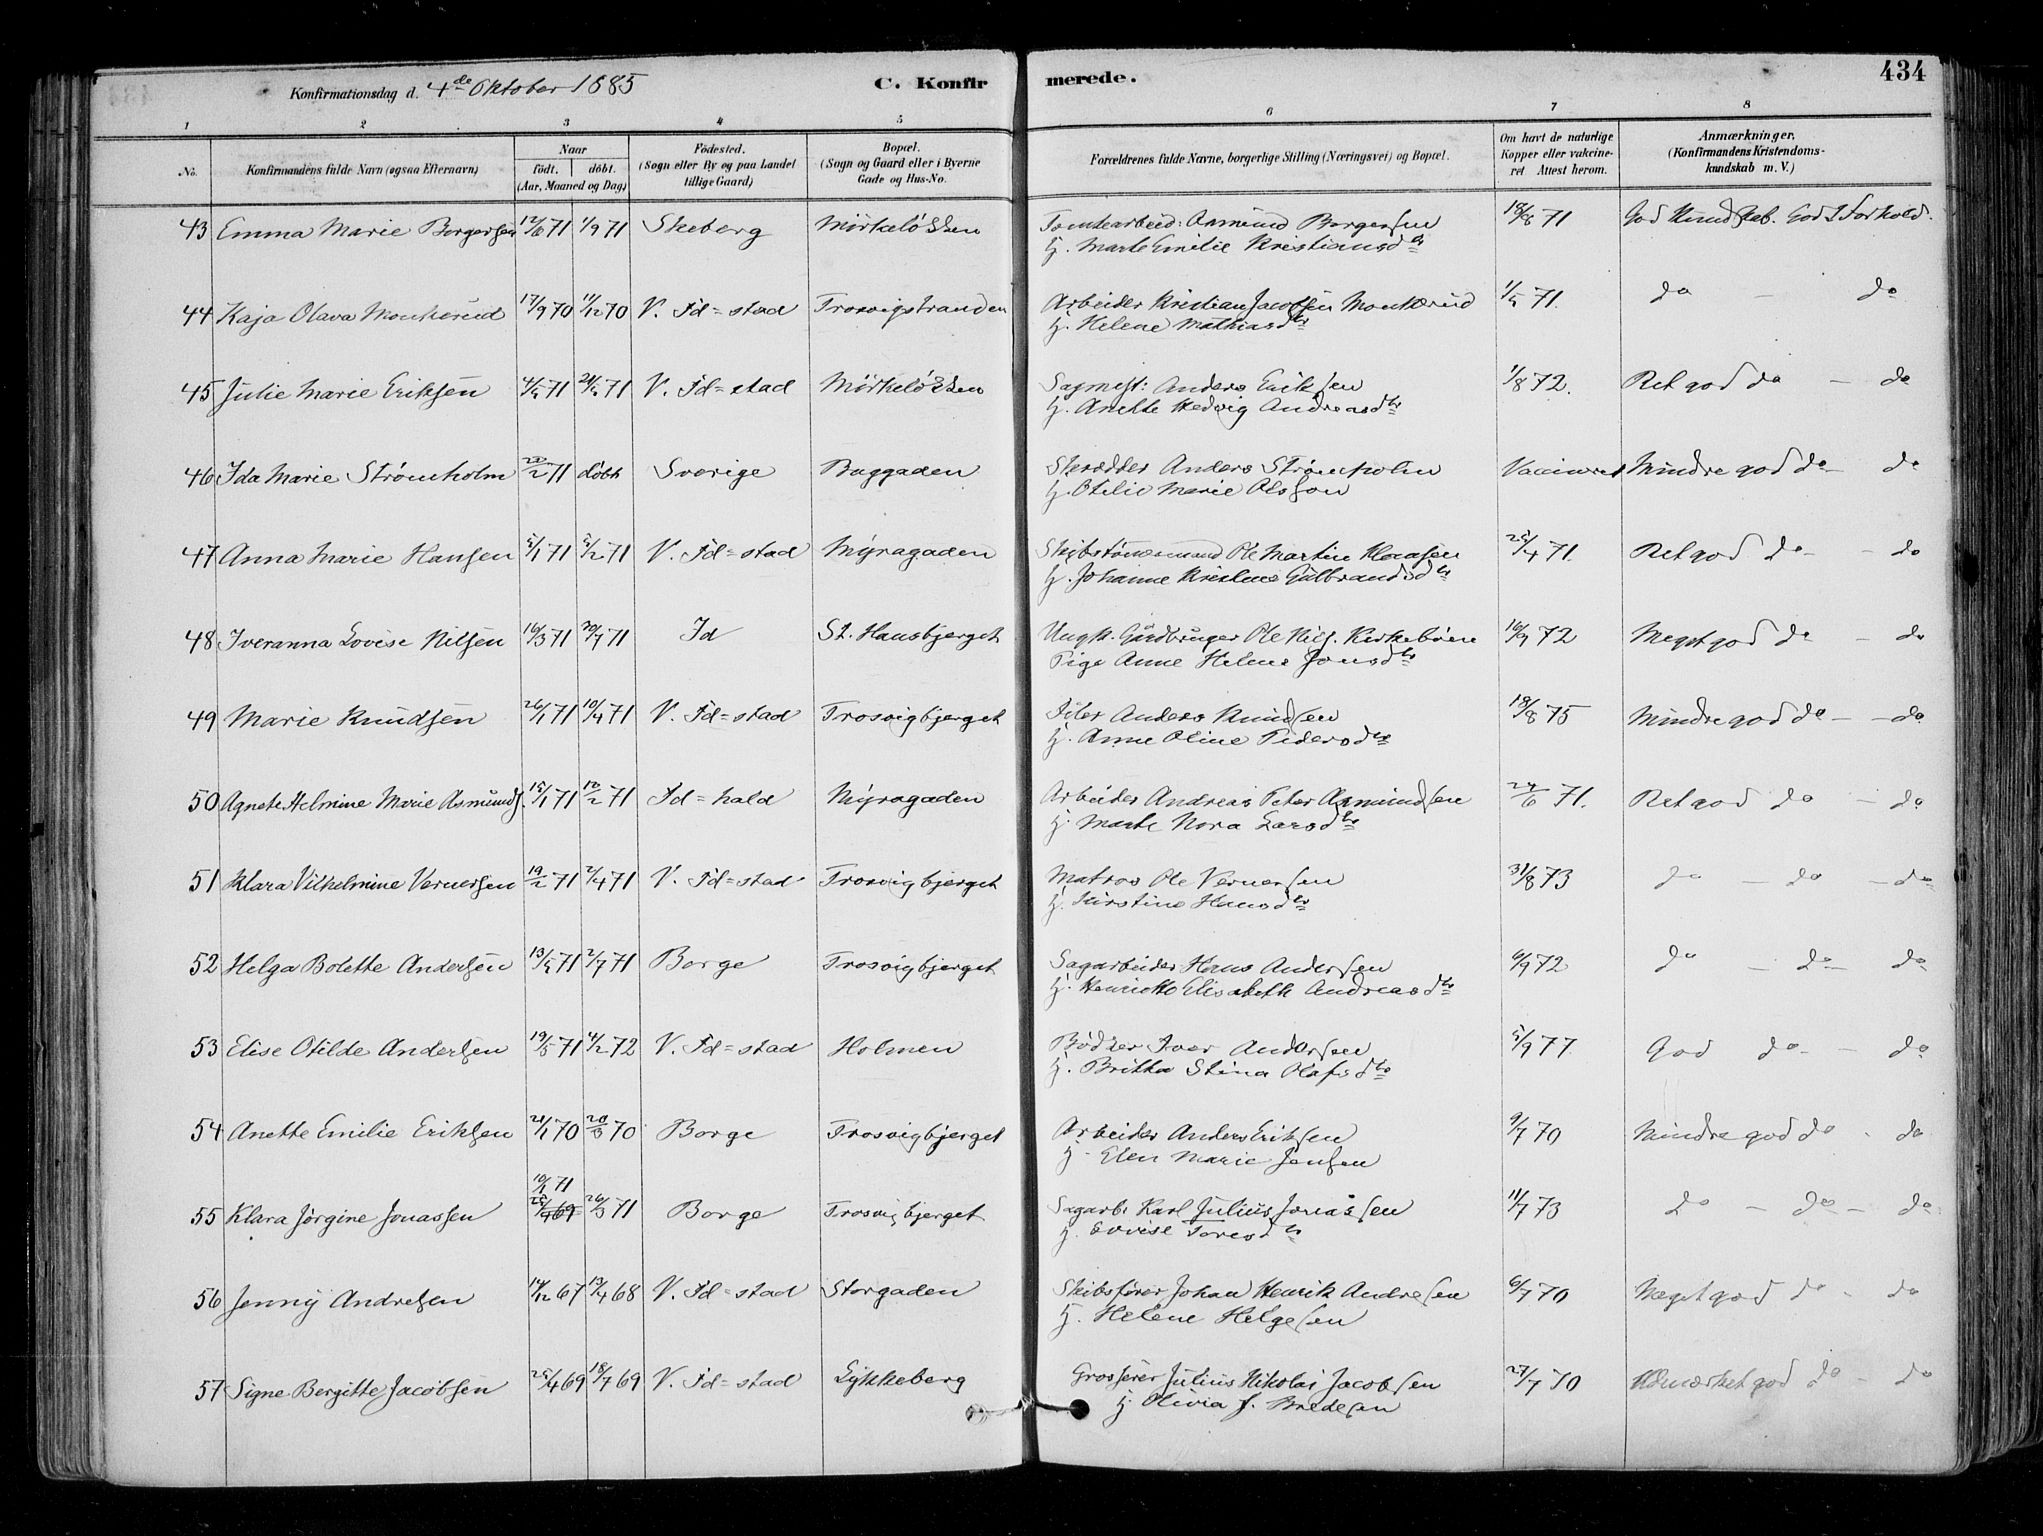 Konfirmationsdag d. 4de Oktober 1885
C. Konfirmerede.
434
1 2 3 4 5 6 7 8
No.
Konfirmandens fulde Navn (ogsaa Efternavn)
Naar
födt. döbt.
(Aar, Maaned og Dag)
Födested.
(Sogn eller By og paa Landet
tillige Gaard)
Bopæl.
(Sogn og Gaard eller i Byerne
Gade og Hus-No.
Forældrenes fulde Navne, borgerlige Stilling (Næringsvei) og Bopæl.
Om havt de naturlige
Kopper eller vakcine-
ret Attest herom.
Anmærkninger,
(Konfirmandens Kristendoms-
kundskab m. V.)
43 Emma Marie Borgersen 12/6 71 1/9 71 Skeberg Mörkelökken Tomtearbeid: Asmund Borgersen 18/8 71 God Kundskab. God Forhold.
H. Marte Emilie Kristiansdtr
44 Kaja Olava Monkerud 17/9 70 11/12 70 V. Fd=stad Trosvigstranden Arbeider Kristian Jacobsen Monkerud 1/5 71. do - do
H. Helene Mathiasdtr
45 Julie Marie Eriksen 4/5 71 21/5 71 V. Fd=stad Mörkelökken Sagmest: Anders Eriksen 1/8 72. Ret god do - do
H. Anette Hedvig Andreasdtr
46 Ida Marie Strømholm 22/2 71 döbt Sverige Baggaden Skrædder Anders Strømholm Vaccineret Mindre god do - do
H. Otilie Marie Olsson
47 Anna Marie Hansen 5/1 71 5/2 71 V. Fd=stad Myragaden Skibstömmermand Ole Martin Hansen 25/4 71. Ret god do - do
H. Johanne Kristine Gulbrandsdtr
48 Iveranna Lovise Nilsen 16/3 71 20/7 71 Id St. Hansbjerget Ungk. Gårdbruger Ole Nils. Kirkeböen 16/7 72 Meget god do - do
Pige Anne Helene Jonsdtr
49 Marie Knudsen 26/1 71 10/4 71 V. Fd=stad Trosvigbjerget Filer Anders Knudsen 18/8 75 Mindre god do - do
H. Anne Oline Pedersdtr
50 Agnete Helmine Marie Asmunds. 15/1 71 12/2 71 Fd=hald Myragaden Arbeider Andreas Peter Asmundsen 24/6 71. Ret god do - do
H. Marte Nora Larsdtr
51 Klara Vilhelmine Vernersen 19/2 71 2/4 71 V. Fd=stad Trosvigbjerget Matros Ole Vernersen 31/8 73 do - do - do
H. Kirstine Hansdtr
52 Helga Bolette Andersen 13/5 71 2/7 71 Borge Trosvigbjerget Sagarbeider Hans Andersen 6/9 72 do - do - do
H. Henriette Elisabeth Andreasdtr
53 Elise Otilde Andersen 19/5 71 4/2 72 V. Fd=stad Holmen Bödker Iver Andersen 5/9 77. God do - do
H. Britta Stina Olafsdtr
54 Anette Emilie Eriksen 21/1 70 20/3 70 Borge Trosvigbjerget Arbeider Anders Eriksen 9/7 70 Mindre god do - do
H. Elen Marie Jensen
10/1 71
55 Klara Jørgine Jonassen 25/4 69 26/3 71 Borge Trosvigbjerget Sagarb: Karl Julius Jonassen 11/7 73 do - do - do
H. Lovise Toresdtr
56 Jenny Andresen 14/12 67 13/4 68 V. Fd=stad Storgaden Skibsfører Johan Henrik Andresen 6/7 70 Meget god do - do
H. Helene Helgesen
57 Signe Bergitte Jacobsen 25/4 69 18/7 69 V. Fd=stad Lykkeberg Grosserer Julius Nikolai Jacobsen 27/7 70 Udmærket god do - do
H. Olivia f. Bredesen